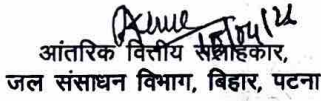 आंतरिक वित्तीय सलाहकार,
जल संसाधन विभाग, बिहार, पटना